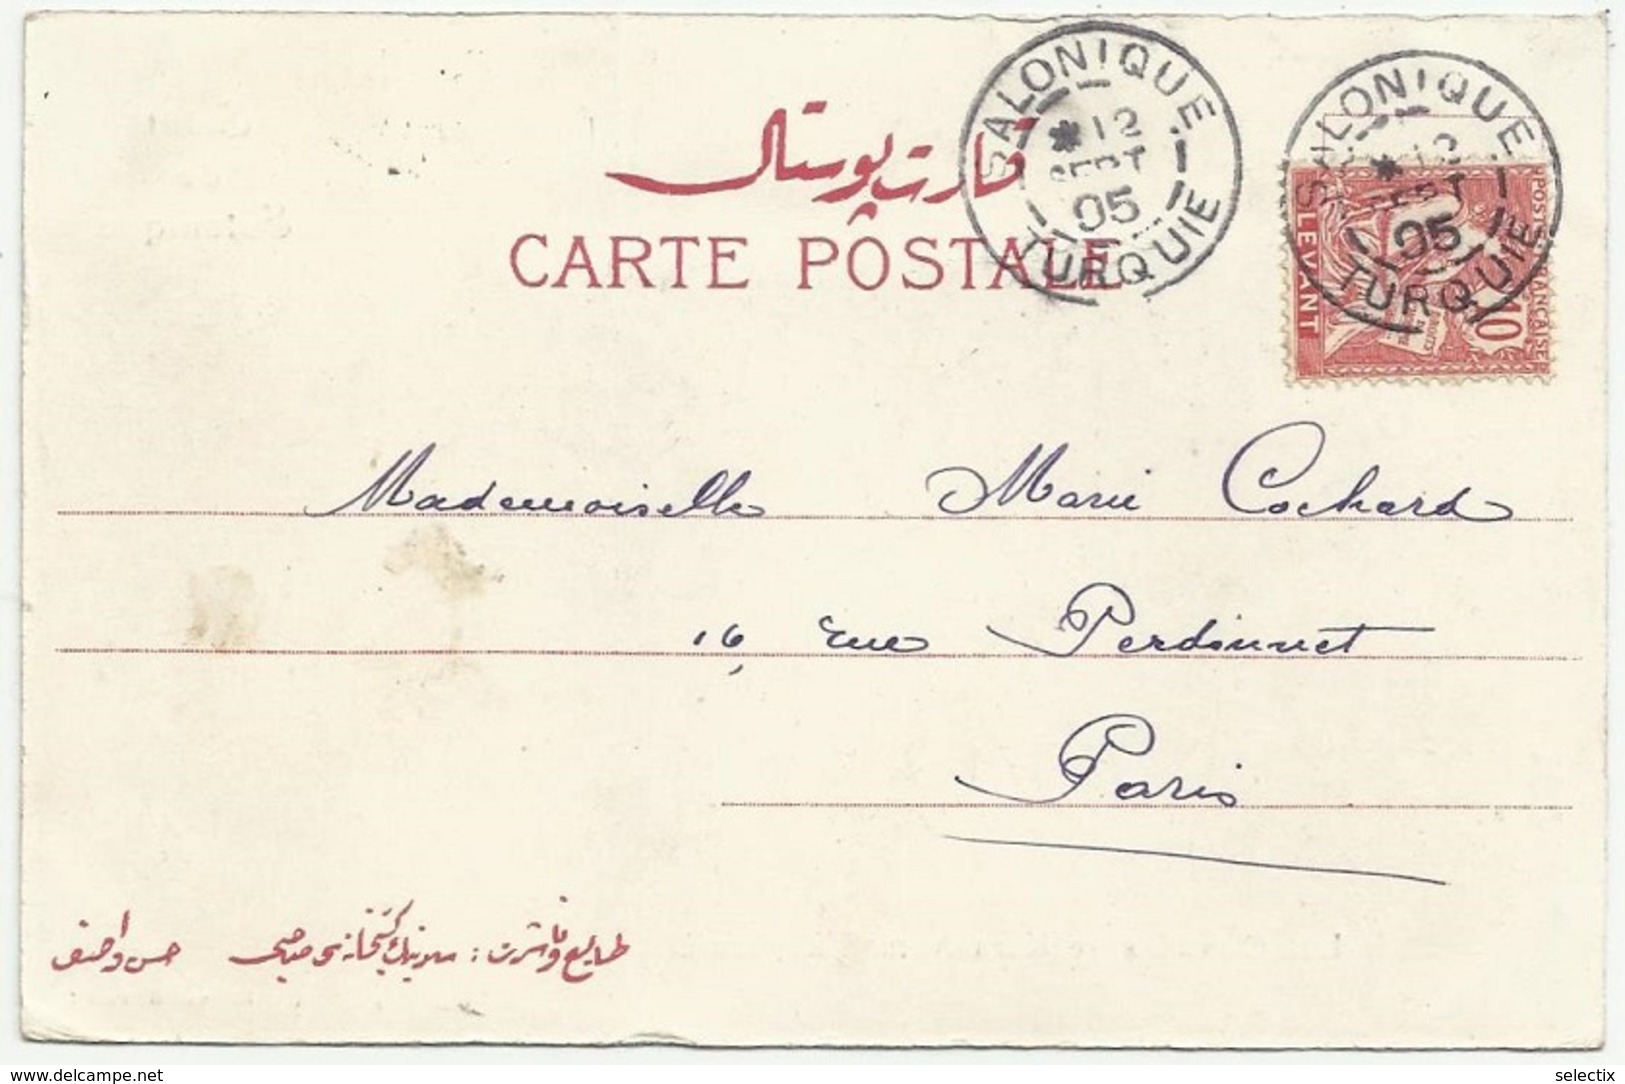 قارت پوستال
CARTE POSTALE
SALONIQUE
*12
SEPT
05
TURQUIE
SALONIQUE
*12
SEPT
05
TURQUIE
POSTE FRANÇAISE
10
LEVANT
Mademoiselle Marie Cochard
16, rue Perdonnet
Paris
طابع و ناشرى : سلانيك كتبخانه سى صاحبى حسن واصف
delcampe.net
selectix